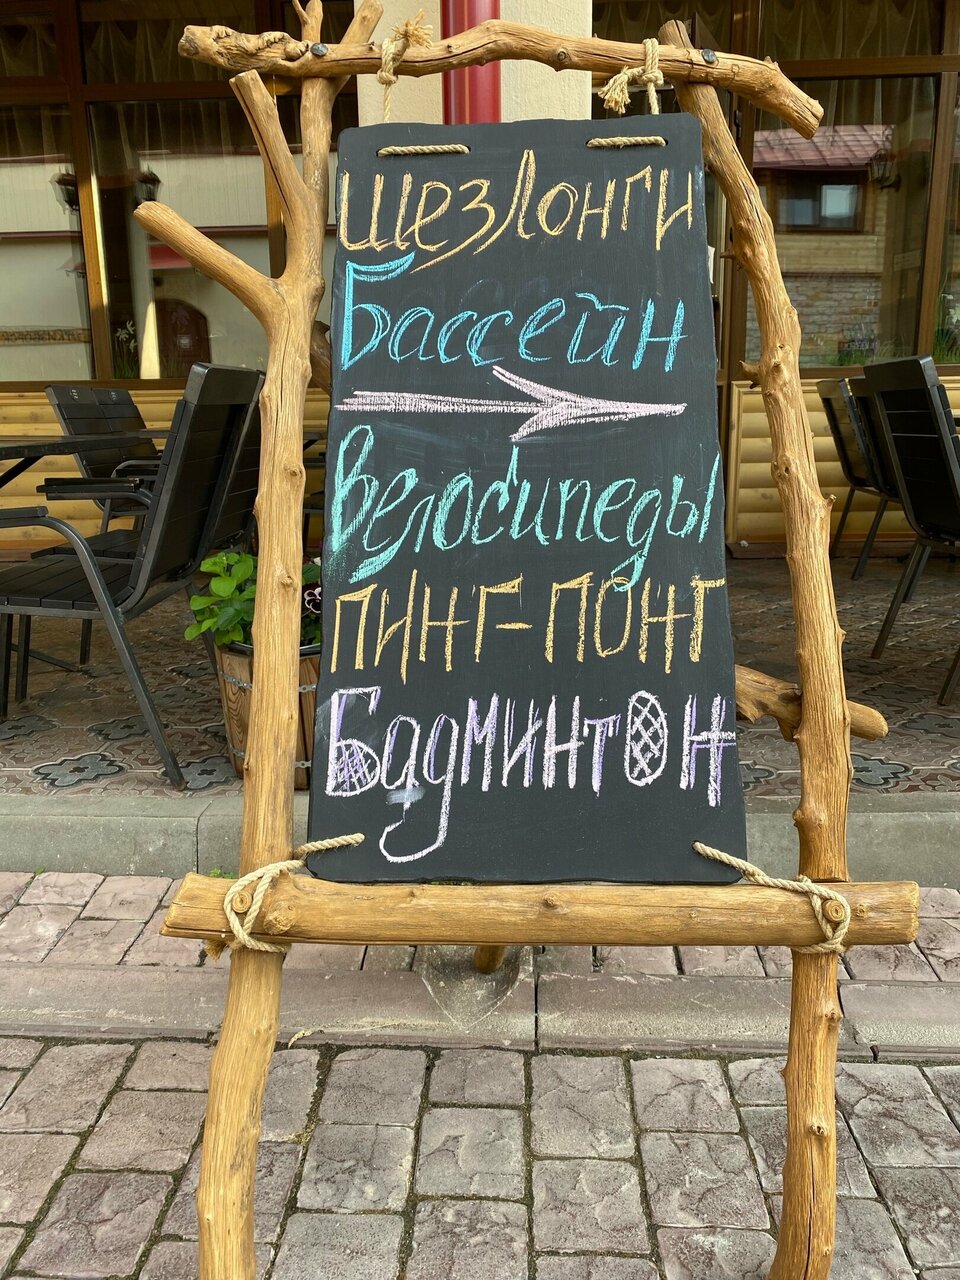 Шезлонги
Бассейн
Велосипеды
Пинг-понг
Бадминтон